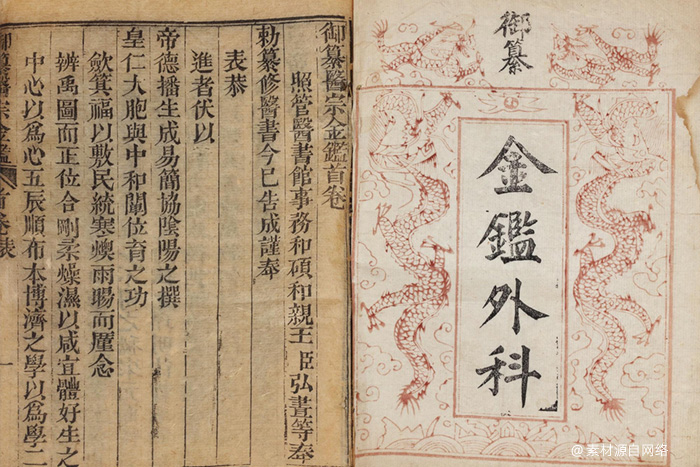 御纂
金鑑外科
御纂醫宗金鑑首卷
照管醫書館事務和碩和親王臣弘晝等奉
勅纂修醫書今已告成謹奉
表恭
進者伏以
帝德播生成易簡協陰陽之撰
皇仁大胞與中和闡位育之功
斂箕福以敷民統寒燠雨暘而厪念
辨禹圖而正位合剛柔燥濕以咸宜體好生之
中心以爲心五辰順布本博濟之學以爲學二
御纂醫宗金鑑 首卷表 一
@素材源自网络